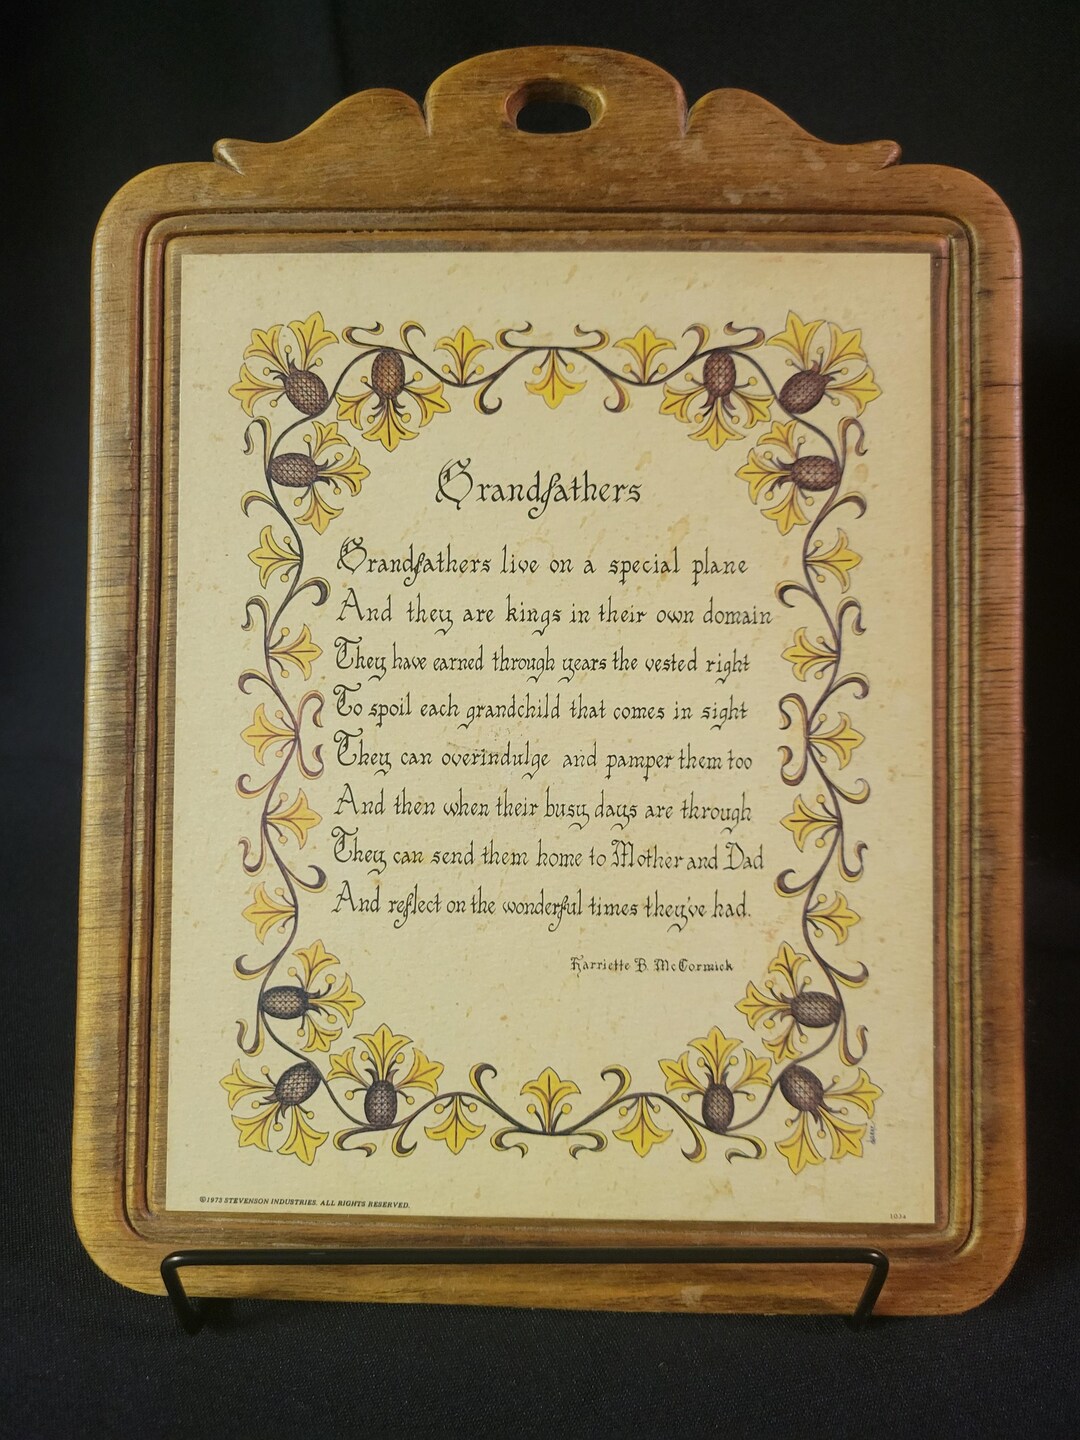 Grandfathers
Grandfathers live on a special plane
And they are kings in their own domain
They have earned through years the vested right
To spoil each grandchild that comes in sight
They can overindulge and pamper them too
And then when their busy days are through
They can send them home to Mother and Dad
And reflect on the wonderful times they've had.
Harriette B. McCormick
©1973 STEVENSON INDUSTRIES. ALL RIGHTS RESERVED.